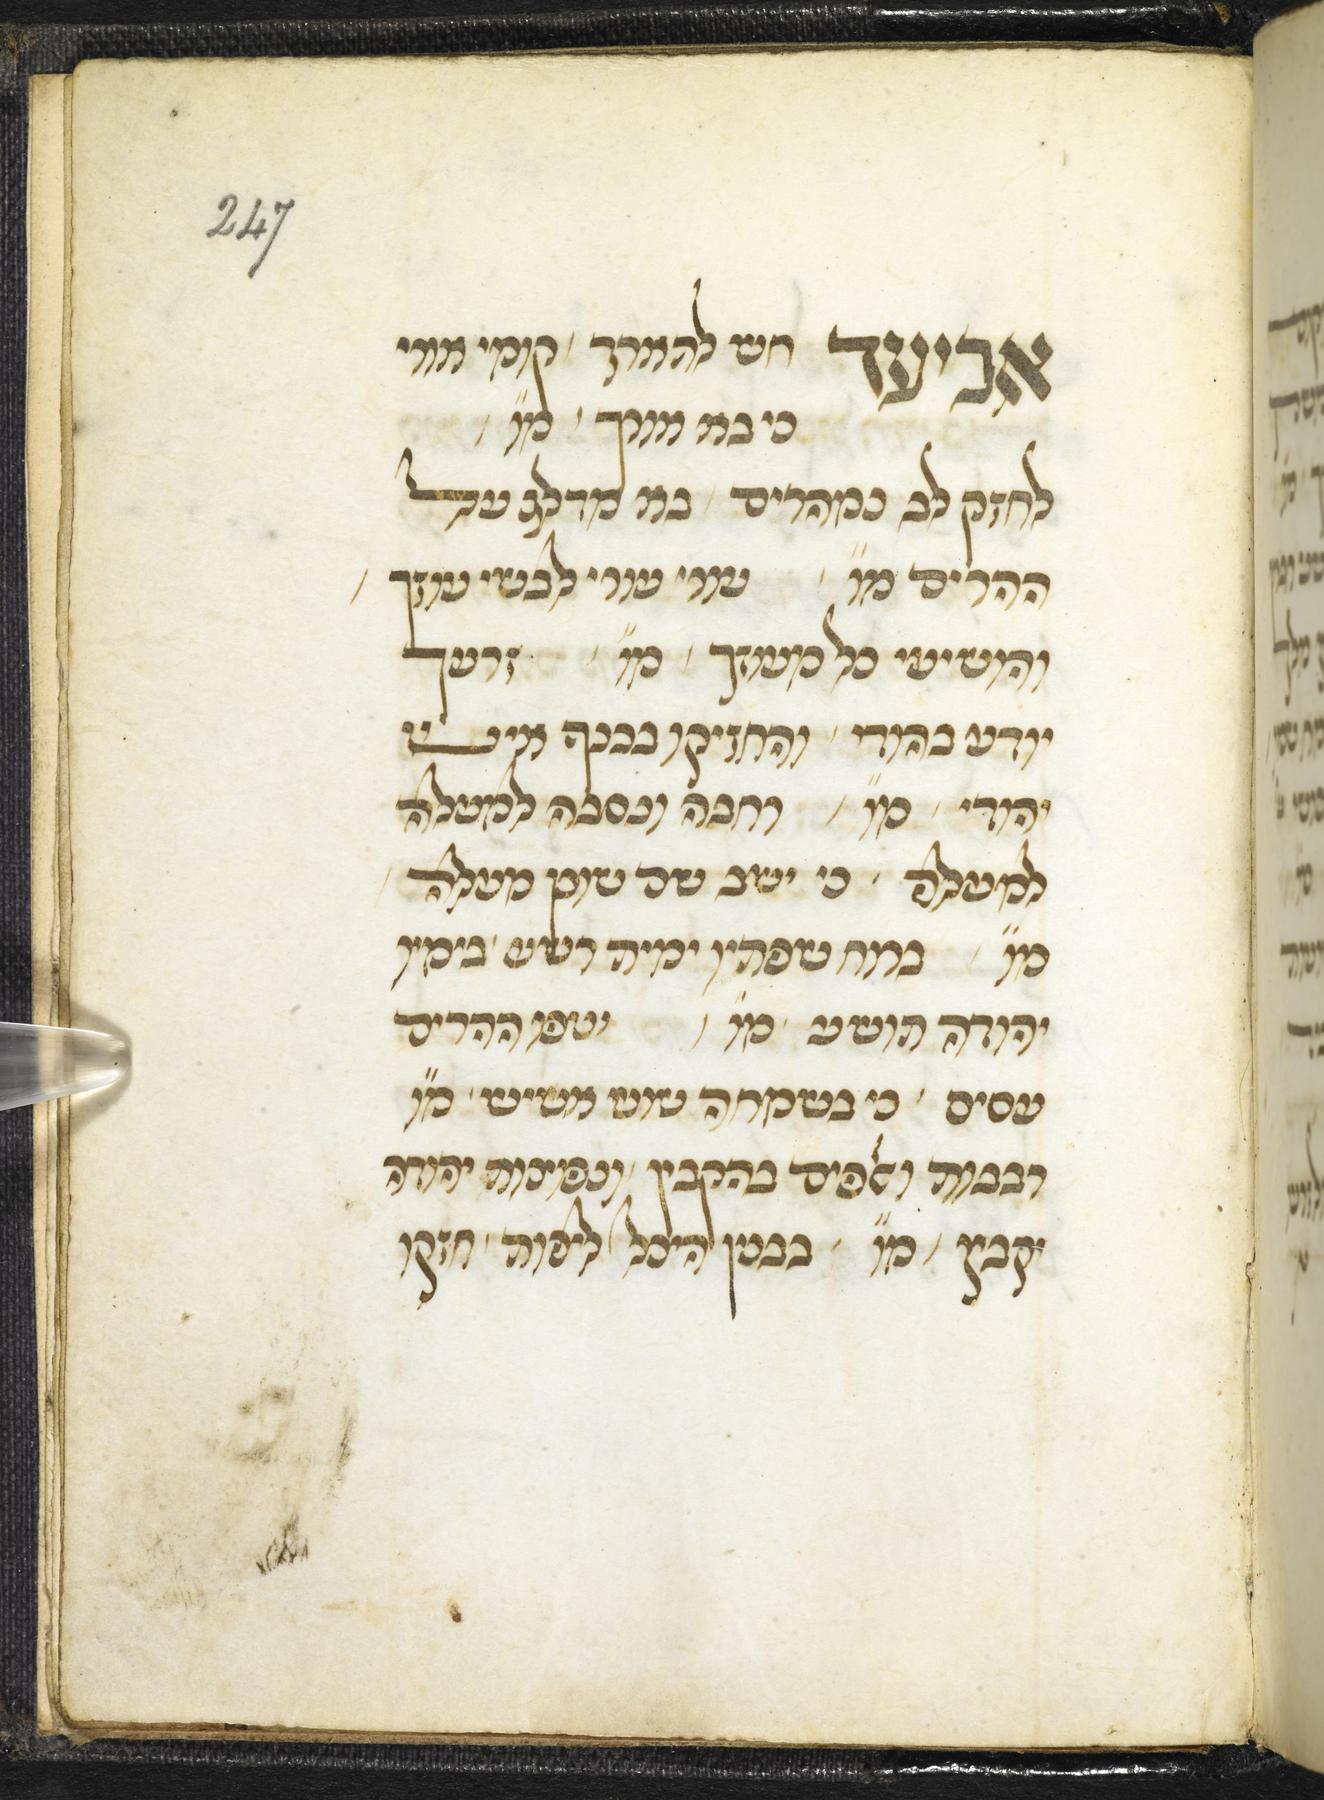 247
אביעד חש להורך / קומי אורי
כי בא אורך / מו״ /
לחזק לב נמהרים / בא מדלג על
ההרים מו״ / עורי עורי לבשי עוזך /
והושיטי כל מעוזך / מו״ / זרעך
יודע בהודו / והחזיקו בכנף איש
יהודי / מו״ / ורחבה ונסבה למעלה
למעלה / כי ישב שם שוכן מעלה /
מו״ / ברוח שפתיו ימית רשע / בימיו
יהודה תושע / מו״ / נטפו ההרים
עסיס / כי בשמחה שוש אשיש / מו״
רבבות ואלפים בהקבץ / ונפוצות יהודה
יקבץ / מו״ / בבטן היכל ליפות / חזקו